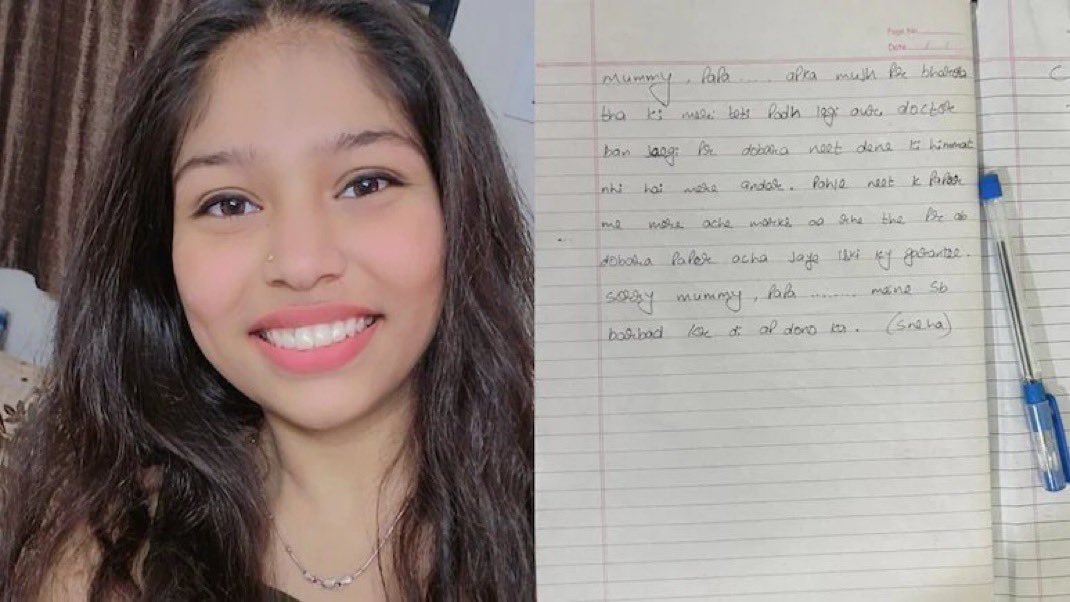 Page No.
Date / /
mummy, PaPa ..... apka mujh Pr bharosa
tha ki meri beti Padh legi aur doctor
ban jaegi Pr dobara neet dene ki himmat
nhi hai mere andar. Pahle neet k PaPer
me mere ache marks aa rhe the Pr ab
dobara PaPer acha jaye iski ky garantee.
sorry mummy, PaPa ........ maine sb
barbad kr di ap dono ka. (Sneha)